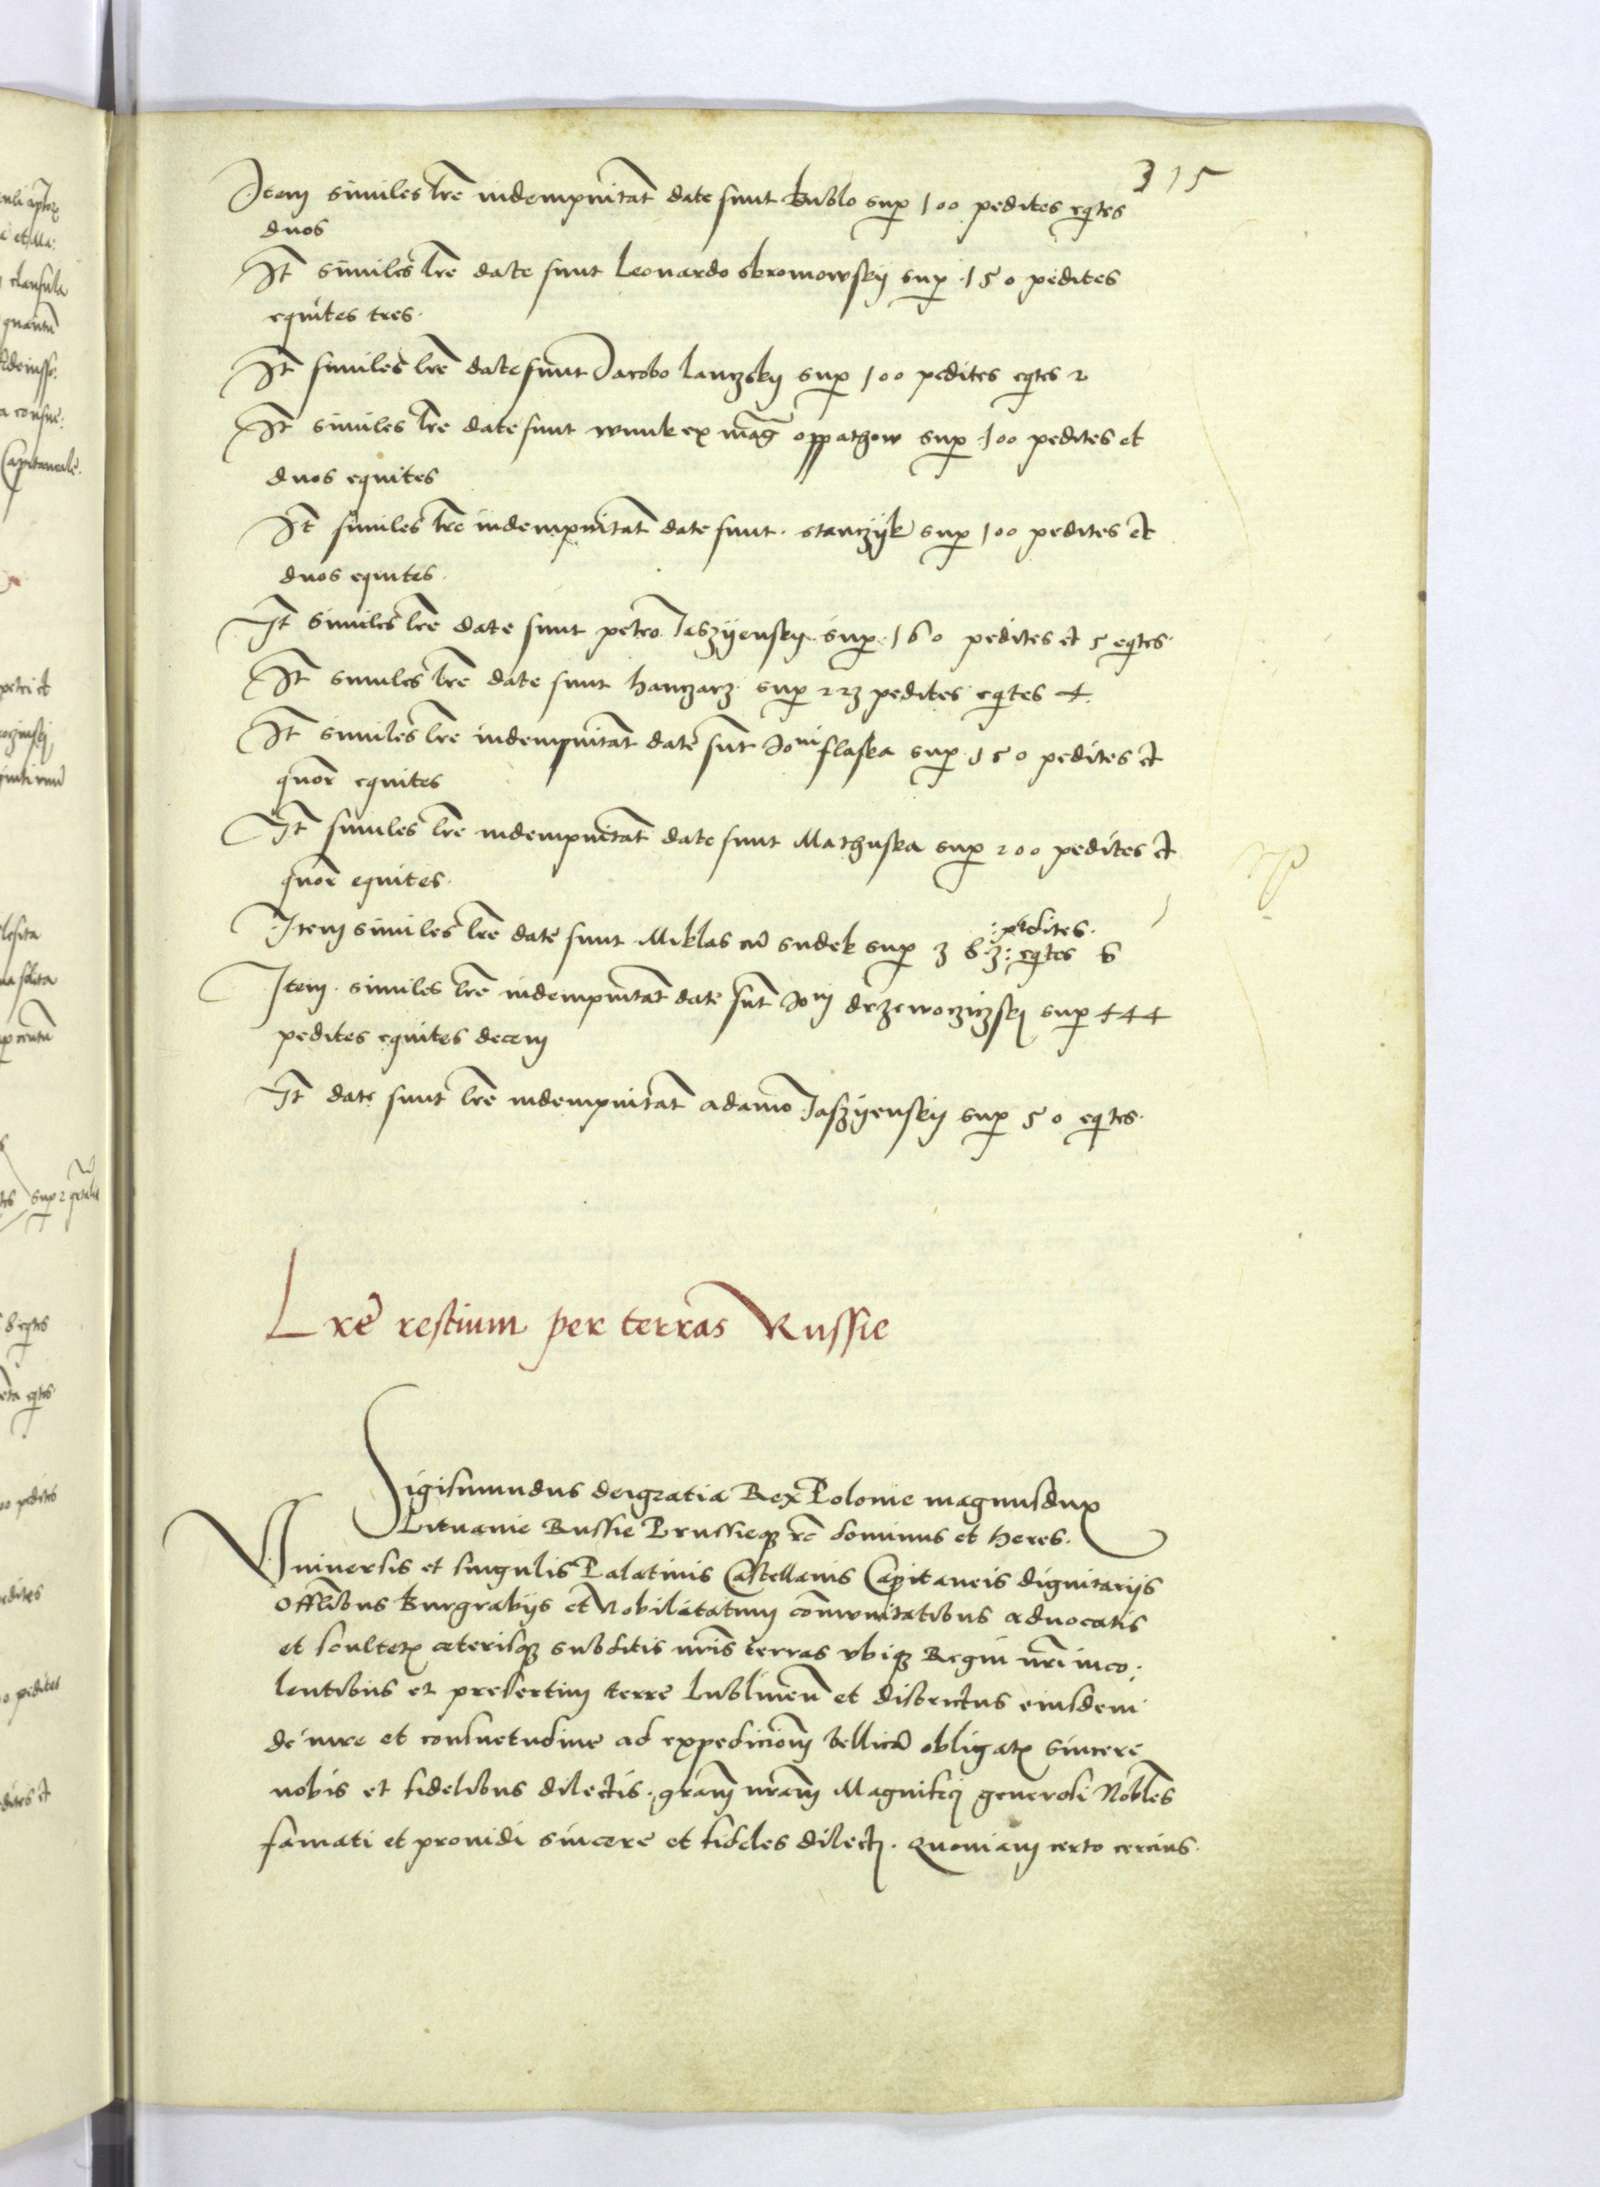 315
Item similes lre indempnitat date sunt kublo sup 100 pedites eqtes
duos
It similes lre date sunt Leonardo skromowsky sup 150 pedites
equites tres.
It similes lre date sunt Jacobo Lanczsky sup 100 pedites eqtes 2
It similes lre date sunt ex mag oppathow sup 100 pedites et
duos equites
It similes lre indempnitat date sunt. stanczyk sup 100 pedites et
duos equites.
It similes lre date sunt petro Jaszyensky. sup. 160 pedites et 5 eqtes.
It similes lre date sunt hanczarz. sup 223 pedites eqtes 4.
It similes lre indempnitat date sunt Joni flaska sup. 150 pedites et
quor equites
It similes lre indempnitat date sunt Mathuska sup 200 pedites et
quor equites.
:pedites.
Item similes lre date sunt Miklas cu sudek sup 363: eqtes 6
Item. similes lre indempnitat date sunt Joni drzewoczsky sup 444
pedites equites decem
It date sunt lre indempnitat adamo Jaszyensky sup 50 eqtes.
Lre restium per terras Russie
Sigismundus dei gratia Rex Polonie magnusdux
Lituanie Russie Prussieq rc dominus et heres.
Universis et singulis Palatinis Castellanis Capitaneis dignitarijs
offlibus Burgrabijs et Nobilitatum comunitatibus advocatis
et scultetx ceterisq subditis nris terras ubiq Regni nri inco:
lentibus et presertim terre Lublinen et districtus eiusdem
de iure et consuetudine ad expedicionem bellica obligatx sincere
nobis et fidelibus dilectis. gram nram Magnifici generosi Nobles
famati et providi sincere et fideles dilecti. Quoniam certo cercius.